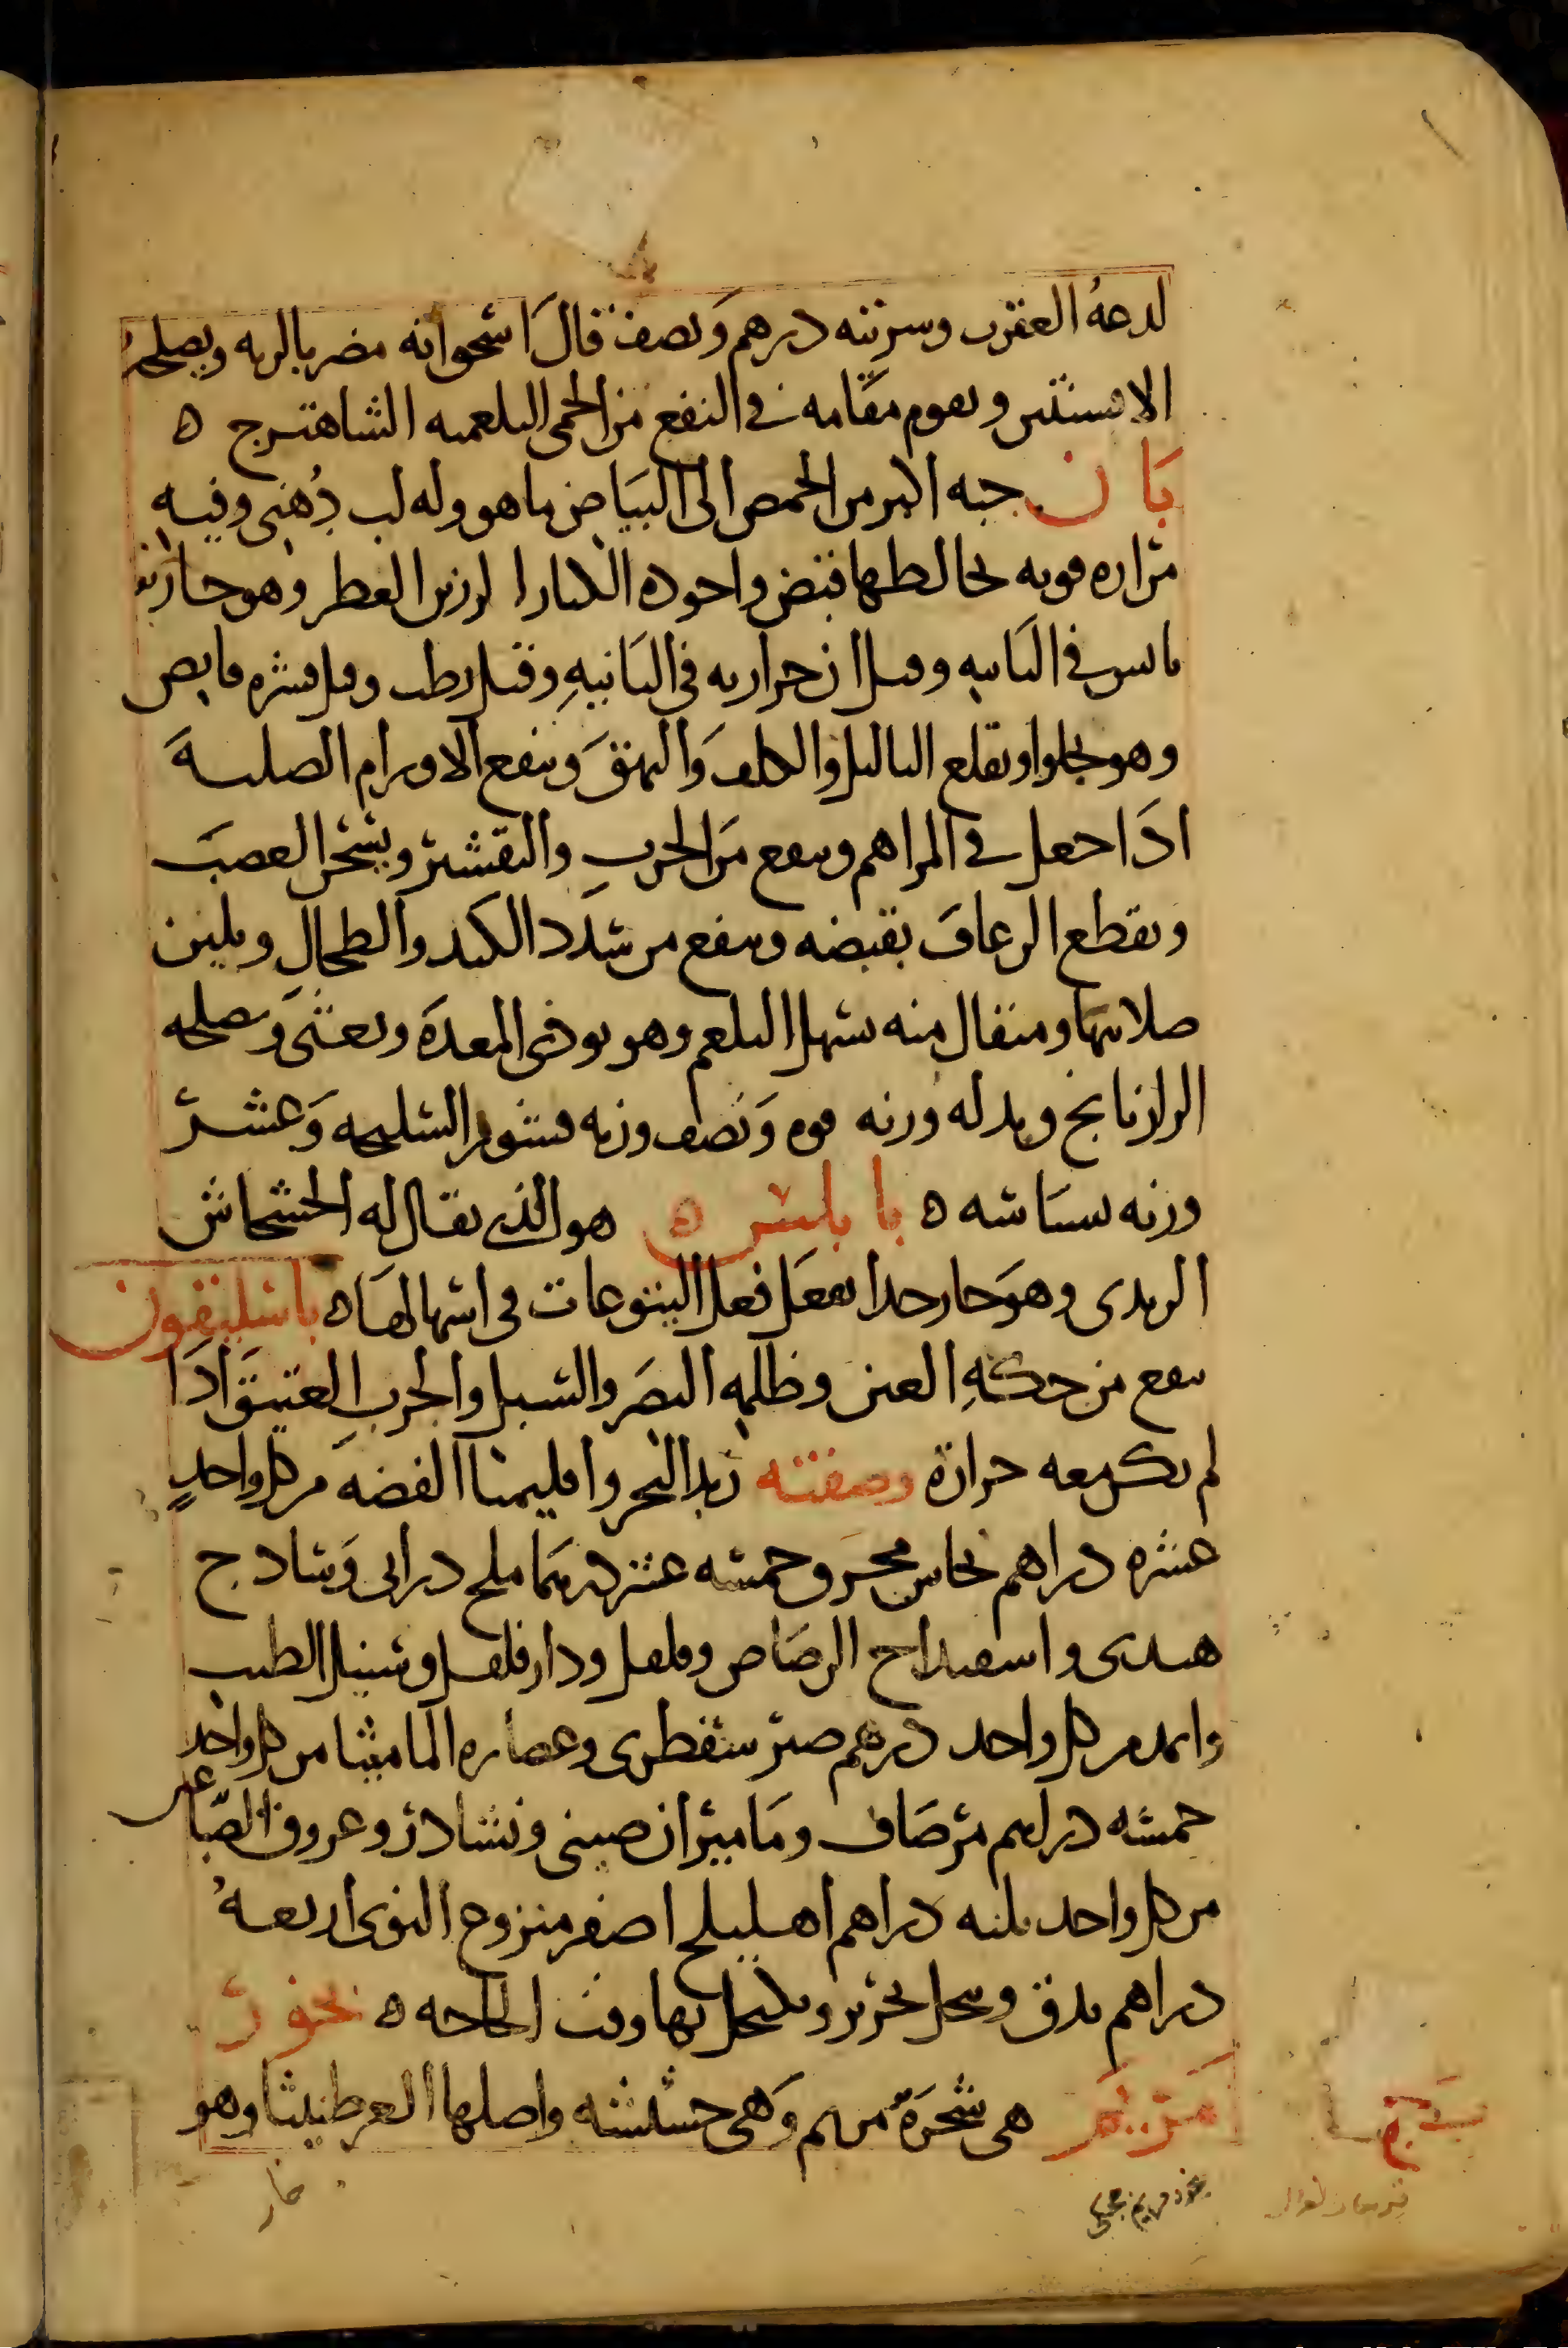 لدعه العقرب وسربته درهم ونصف قال اسحق انه مضر بالريه ويصلحه
الافسنتين ويقوم مقامه في النفع من الحمى البلغميه الشاهترج ه
بان حبه اكبر من الحمص الى البياض ما هو وله لب دهني وفيه
مراره قويه يخالطها قبض واجوده الكبار الرزين العطر وهو حار
يابس في الثانيه وقيل ان حرارته في الثانيه وقيل رطب وقيل قشره قابض
وهو يجلوا ويقلع الثاليل والكلف والبهق وينفع الاورام الصلبه
اذا جعل في المراهم وينفع من الجرب والتقشر ويسخن العصب
ويقطع الرعاف بقبضه وينفع من سدد الكبد والطحال ويلين
صلابتها ومثقال منه يسهل البلغم وهو يوذي المعدة ويغثي ويصلحه
الرازيانج وبدله وزنه فوه ونصف وزنه قشور السليخه وعشر
وزنه بسباسه ه بابلس ه هو الذي يقال له الخشخاش
الزبدى وهو حار جدا يفعل فعل اليتوعات في اسهالها ه باسليقون
ينفع من حكة العين وظلمه البصر والسبل والجرب العتيق اذا
لم يكن معه حرارة وصفته زبد البحر واقليميا الفضه من كل واحد
عشره دراهم نحاس محرق وخمسه عشر درهما ملح درانى وساذج
هندى واسفيداج الرصاص وفلفل ودارفلفل وسنبل الطيب
واثمد من كل واحد درهم صبر سقطرى وعصاره الماميثا من كل واحد
خمسه دراهم مر صاف وماميران صيني ونشادر وعروق الصباغين
من كل واحد ثلثه دراهم اهليلج اصفر منزوع النوى اربعه
دراهم يدق وينخل بحرير ويكتحل بها وقت الحاجه ه بخور
مريم هي شجرة مريم وهي حشيشه واصلها العرطنيثا وهو
بخور مريم